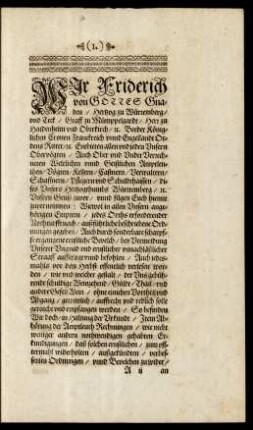 (1.)
WIr Friderich
von GOTTES Gna-
den / Hertzog zu Würtemberg /
vnd Teck / Graff zu Mümppelgardt / Herr zu
Haydenheim vnd Oberkirch / rc. Beeder König-
lichen Cronen Franckreich vnnd Engellandt Or-
dens Ritter / rc. Embieten allen vnd jeden Vnsern
Obervögten / Auch Ober vnd Vnder
Weltlichen vnnd Geistlichen Amptleu-
ten / Vögten / Kellern / Verwaltern /
Schaffnern / Pflegern vnd Schultheissen / di-
ses Vnsers Hertzogthumbs Würtemberg / rc.
Vnsern Gruß zuvor / vnnd fügen Euch hiemit
zuvernemmen: Wiewol in allen Vnsern ange-
jedes Orths erforderender
Notturfft nach / außführliche beschribne Ord-
nungen gegeben / Auch durch sonderbare
Bevelch / bey Vermeidung
Vnserer Vngnad vnd ernstlicher vnnachläßlicher
Straaff aufferlegt vnd befohlen / Auch jedes-
mahls vor dem Herbst offentlich verlesen wor-
den / wie vnd welcher gestalt / der Vns gebüh-
rende schuldige Weinzehend / Gülte / Theil / vnd
andere Gefell Wein / ohne einichen Vortheil vnd
Abgang / getrewlich / auffrecht vnd redlich solle
gereicht vnd empfangen werden: So befinden
Wir doch / in der Vrkundt / Item Ab-
hörung der Amptleuth Rechnungen / wie nicht
weniger andern nothwendigen gehabten Er-
kundigungen / daß solchen ernstlichen / zum off-
termahl widerholten / außgekündten / verbes-
serten Ordnungen / vnnd Bevelchen zuwider /
A ii an